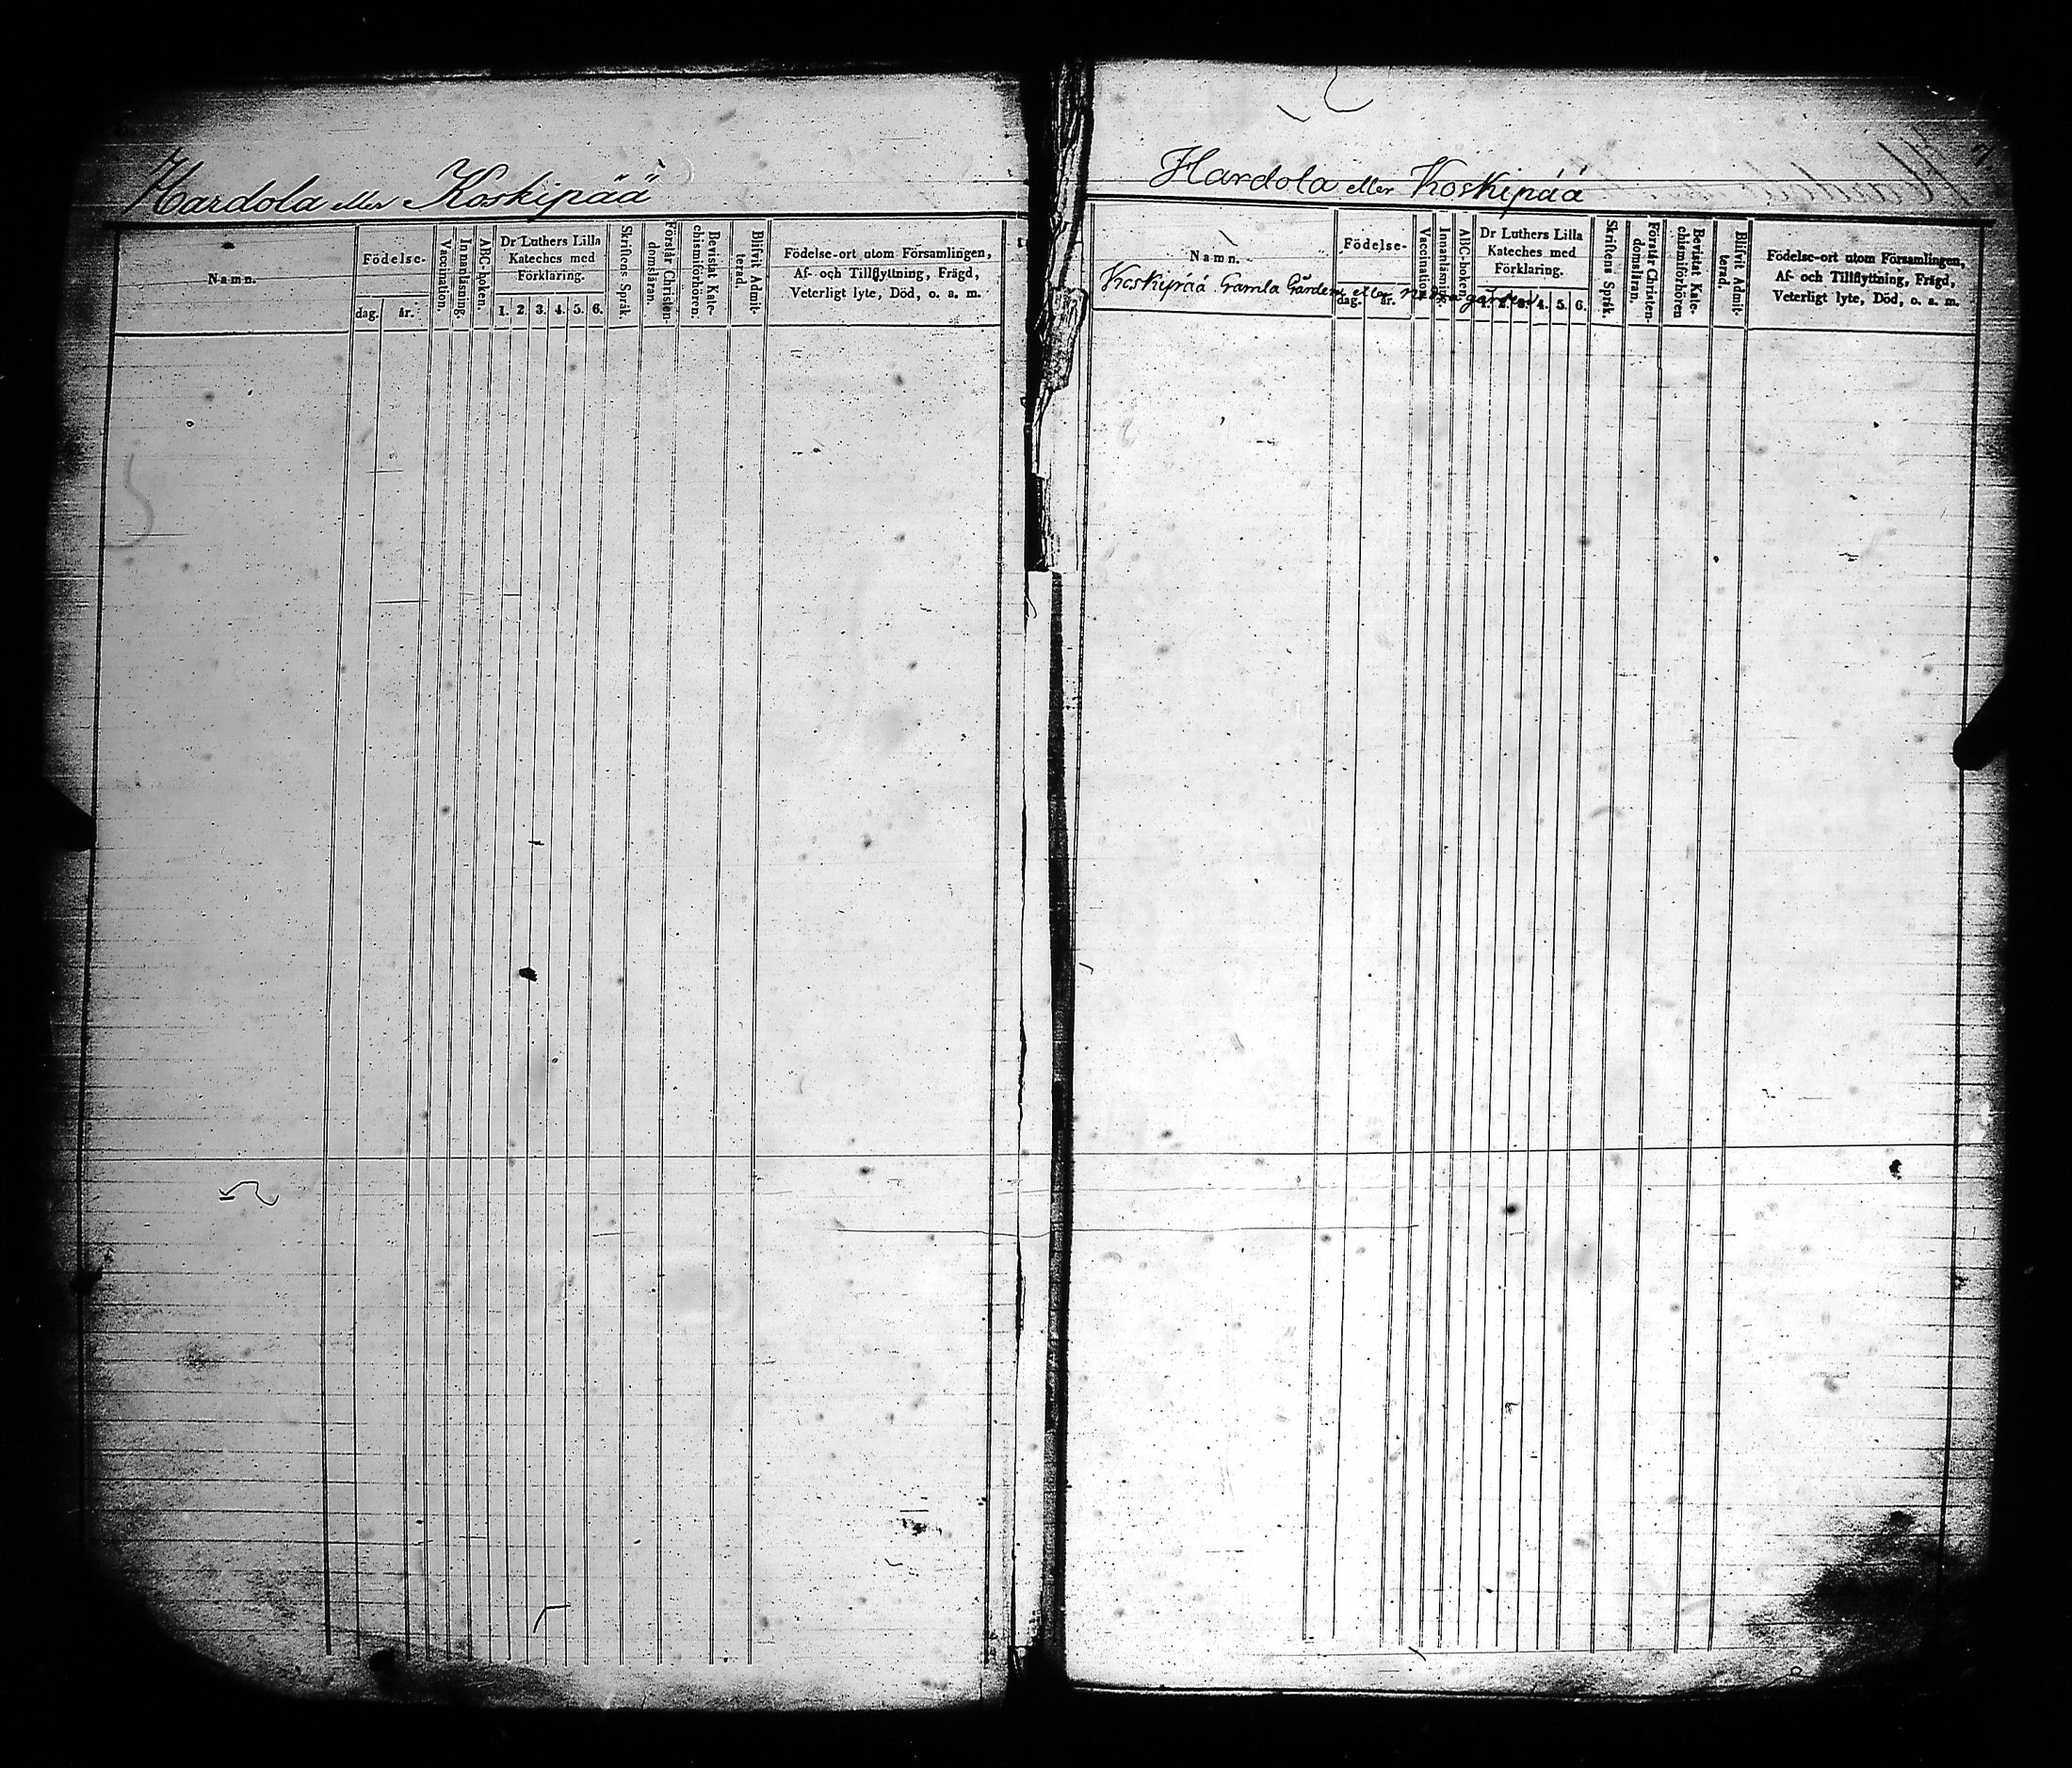 Hardola eller Koskipää
Namn.
Födelse-
dag.
år.
Vaccination.
Innanläsning.
ABC-boken.
Dr Luthers Lilla
Kateches med
Förklaring.
1. 2. 3. 4. 5. 6.
Skriftens Språk.
Förstår Christen-
domsläran.
Bevistat Kate-
chismiförhören.
Blifvit Admit-
terad.
Födelse-ort utom Församlingen,
Af- och Tillflyttning, Frägd,
Veterligt lyte, Död, o. s. m.
7.
Hardola eller Koskipää
Namn.
Koskipää Gamla Gården eller nedra gården
Födelse-
dag.
år.
Vaccination.
Innanläsning.
ABC-boken.
Dr Luthers Lilla
Kateches med
Förklaring.
1. 2. 3. 4. 5. 6.
Skriftens Språk.
Förstår Christen-
domsläran.
Bevistat Kate-
chismiförhören
Blifvit Admit-
terad.
Födelse-ort utom Församlingen,
Af- och Tillflyttning, Frägd,
Veterligt lyte, Död, o. s. m.